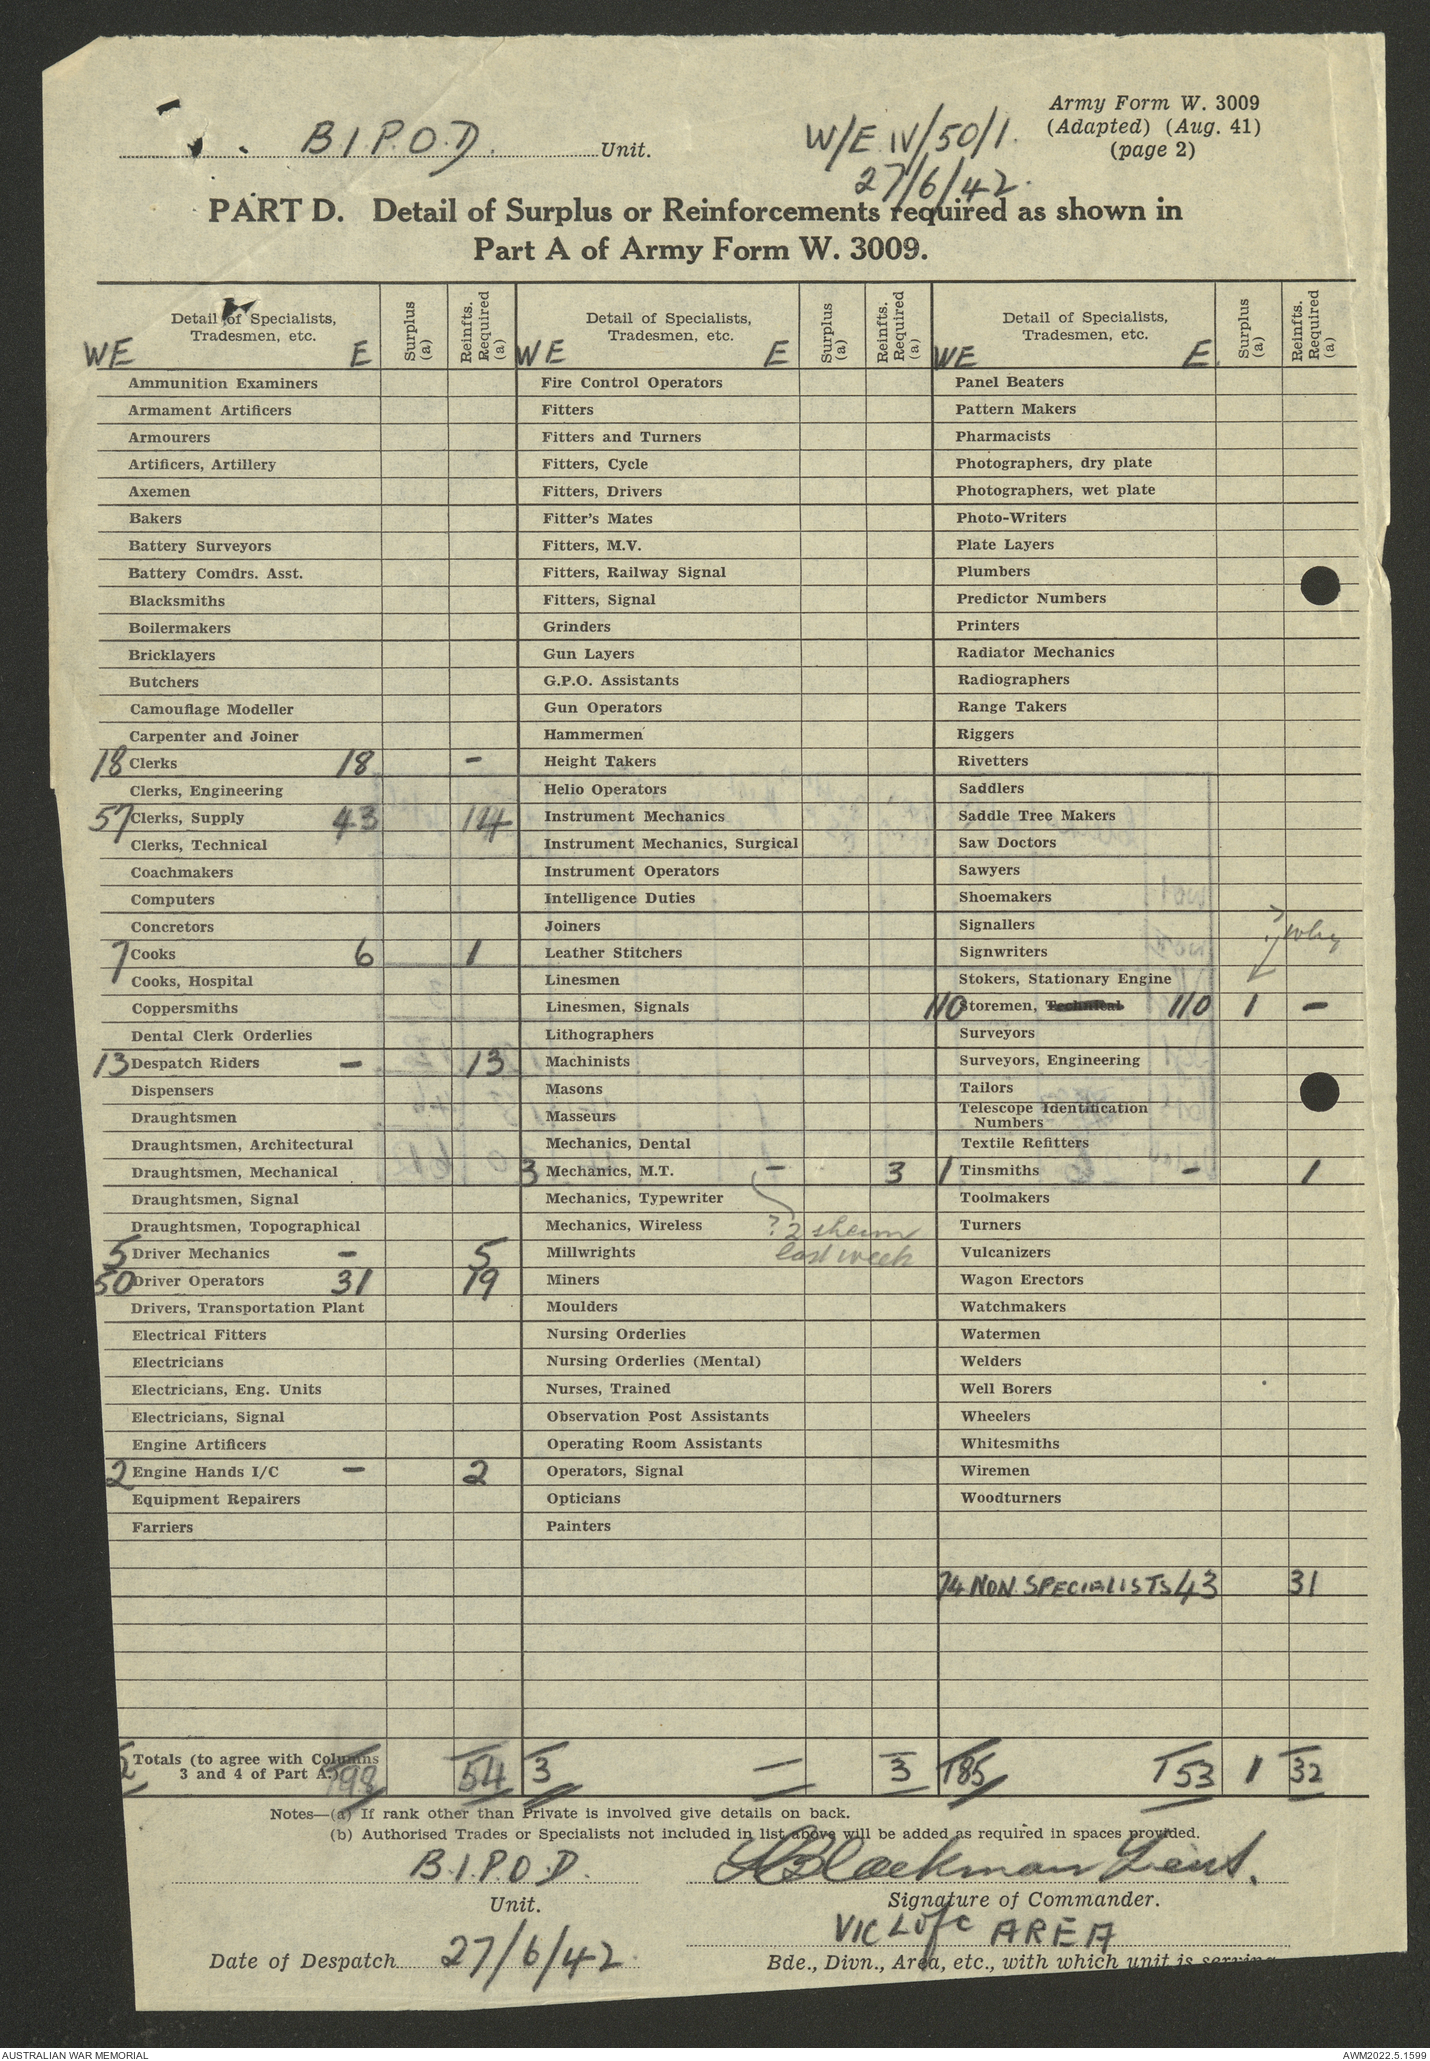 Army Form W. 3009
(Adapted) (Aug. 41)
(page 2)
B.I.P.O.D. Unit.
W/E IV/50/1.
27/6/42.
PART D. Detail of Surplus or Reinforcements required as shown in
Part A of Army Form W. 3009.
Detail of Specialists, Tradesmen, etc. Surplus (a) Reinfts. Required (a) Detail of Specialists, Tradesmen, etc. Surplus (a) Reinfts. Required (a) Detail of Specialists, Tradesmen, etc. Surplus (a) Reinfts. Required (a)
WE E WE E WE E.
Ammunition Examiners Fire Control Operators Panel Beaters
Armament Artificers Fitters Pattern Makers
Armourers Fitters and Turners Pharmacists
Artificers, Artillery Fitters, Cycle Photographers, dry plate
Axemen Fitters, Drivers Photographers, wet plate
Bakers Fitter's Mates Photo-Writers
Battery Surveyors Fitters, M.V. Plate Layers
Battery Comdrs. Asst. Fitters, Railway Signal Plumbers
Blacksmiths Fitters, Signal Predictor Numbers
Boilermakers Grinders Printers
Bricklayers Gun Layers Radiator Mechanics
Butchers G.P.O. Assistants Radiographers
Camouflage Modeller Gun Operators Range Takers
Carpenter and Joiner Hammermen Riggers
18 Clerks 18 - Height Takers Rivetters
Clerks, Engineering Helio Operators Saddlers
57 Clerks, Supply 43 14 Instrument Mechanics Saddle Tree Makers
Clerks, Technical Instrument Mechanics, Surgical Saw Doctors
Coachmakers Instrument Operators Sawyers
Computers Intelligence Duties Shoemakers
Concretors Joiners Signallers ? why
7 Cooks 6 1 Leather Stitchers Signwriters
Cooks, Hospital Linesmen Stokers, Stationary Engine
Coppersmiths Linesmen, Signals 110 Storemen, Technical 110 1 -
Dental Clerk Orderlies Lithographers Surveyors
13 Despatch Riders - 13 Machinists Surveyors, Engineering
Dispensers Masons Tailors
Draughtsmen Masseurs Telescope Identification Numbers
Draughtsmen, Architectural Mechanics, Dental Textile Refitters
Draughtsmen, Mechanical 3 Mechanics, M.T. - 3 1 Tinsmiths - 1
Draughtsmen, Signal Mechanics, Typewriter Toolmakers
Draughtsmen, Topographical Mechanics, Wireless ? 2 shewn Turners
5 Driver Mechanics - 5 Millwrights last week Vulcanizers
50 Driver Operators 31 19 Miners Wagon Erectors
Drivers, Transportation Plant Moulders Watchmakers
Electrical Fitters Nursing Orderlies Watermen
Electricians Nursing Orderlies (Mental) Welders
Electricians, Eng. Units Nurses, Trained Well Borers
Electricians, Signal Observation Post Assistants Wheelers
Engine Artificers Operating Room Assistants Whitesmiths
2 Engine Hands I/C - 2 Operators, Signal Wiremen
Equipment Repairers Opticians Woodturners
Farriers Painters
74 NON SPECIALISTS 43 31
2 Totals (to agree with Columns 3 and 4 of Part A.) 98 54 3 - 3 185 153 1 32
Notes—(a) If rank other than Private is involved give details on back.
(b) Authorised Trades or Specialists not included in list above will be added as required in spaces provided.
B.I.P.O.D. Blackman Lieut.
Unit. Signature of Commander.
VIC L of C AREA
Date of Despatch 27/6/42. Bde., Divn., Area, etc., with which unit is serving
AUSTRALIAN WAR MEMORIAL AWM2022.5.1599